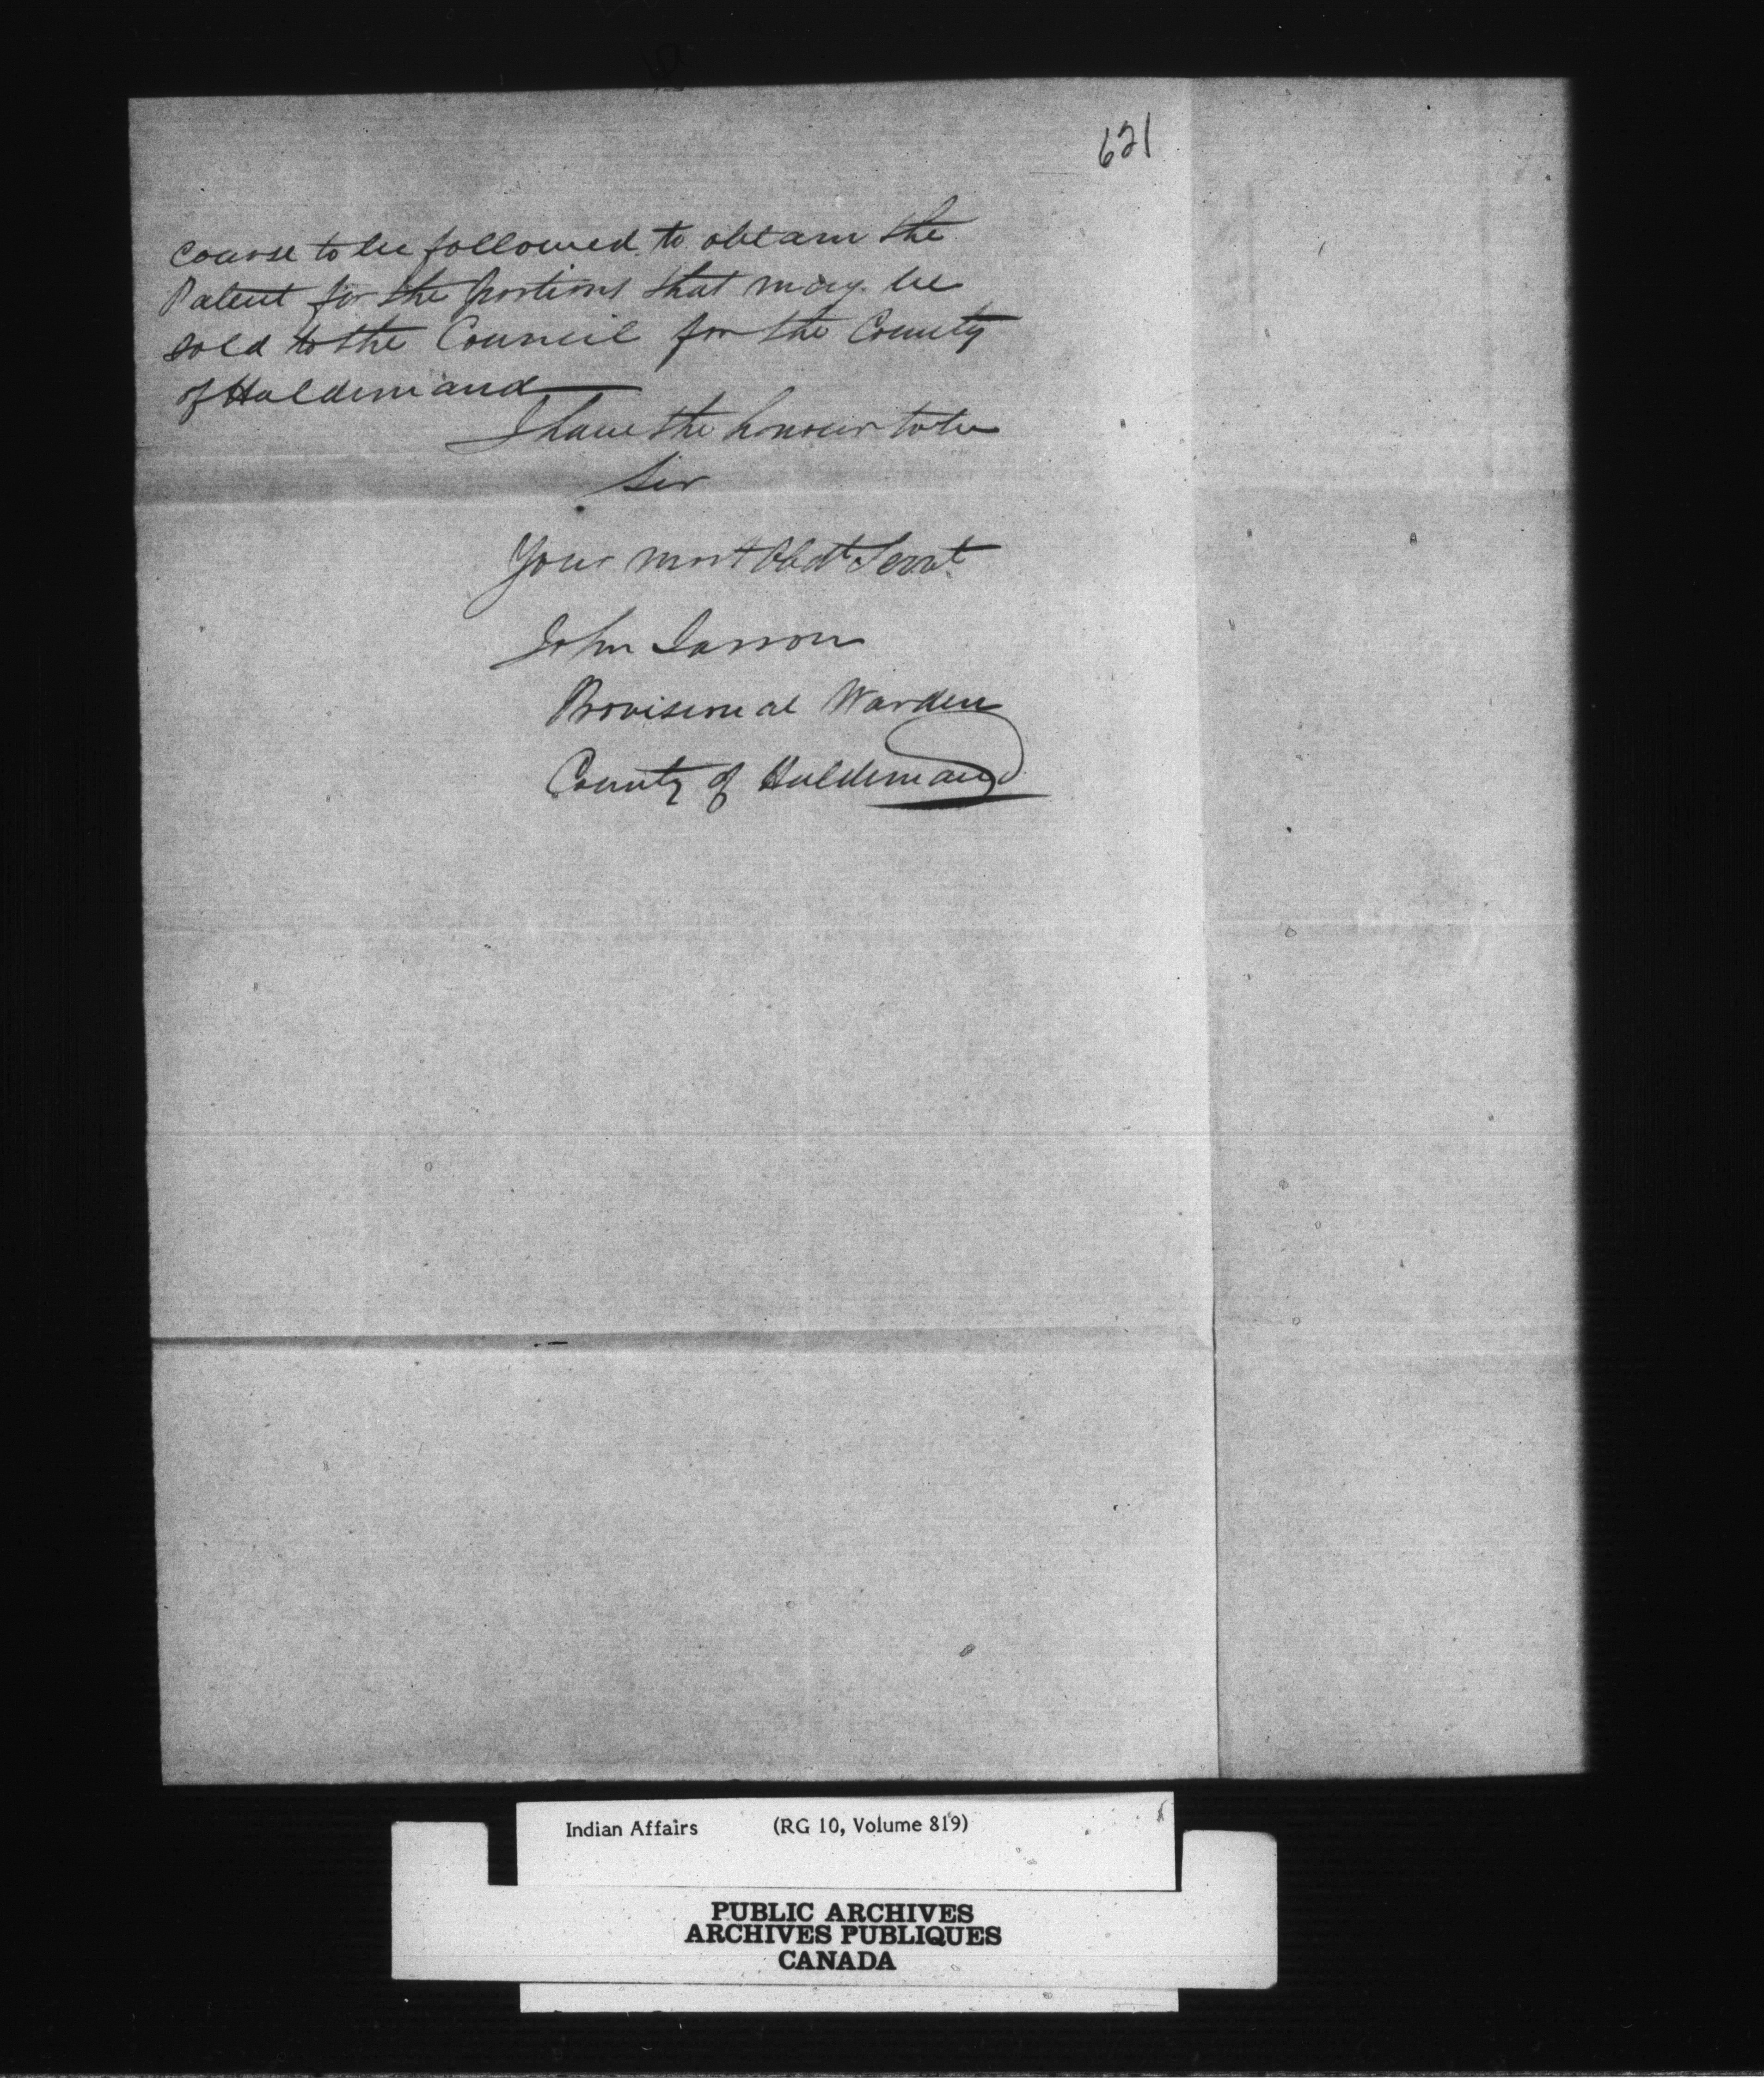 621
course to be followed to obtain the
Patent for the portions that may be
sold to the Council for the County
of Haldimand
I have the honour to be
Sir
Your most Obdt Servt
John
Provisional Warden
County of Haldimand
Indian Affairs (RG 10, Volume 819)
PUBLIC ARCHIVES
ARCHIVES PUBLIQUES
CANADA